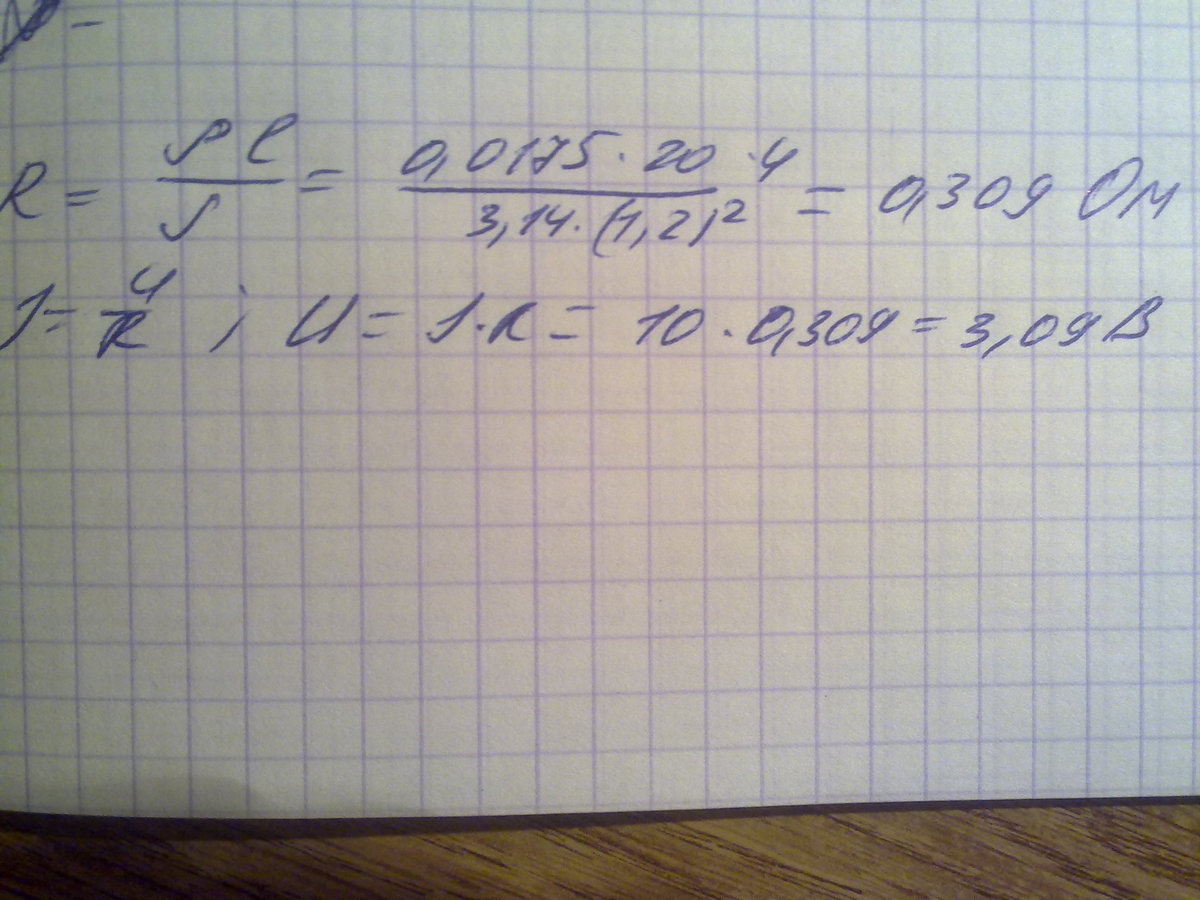 R = ρl/S = 0,0175·20·4/3,14·(1,2)² = 0,309 Ом
I = U/R ; U = I·R = 10·0,309 = 3,09 В